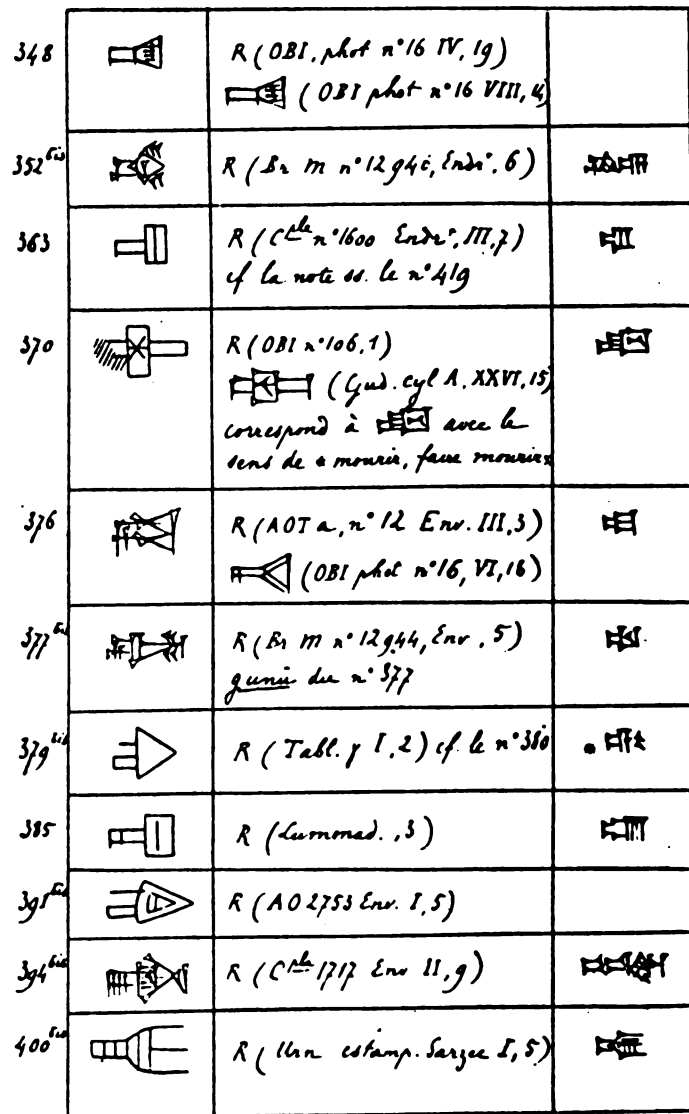 348 R (OBI, phot n° 16 IV, 19)
(OBI phot n° 16 VIII, 4)
352 bis R (Br m n° 1294i, Endr°, 6)
363 R (Cple n° 1600 Endr°, III, 7)
cf la note ss. le n° 419
370 R (OBI n° 106, 1)
(Gud. cyl A. XXVI, 15)
correspond à avec le
sens de « mourir, faire mourir »
376 R (AOT a, n° 12 Env. III, 3)
(OBI phot n° 16, VI, 16)
377 bis R (Br m n° 12944, Env, 5)
gunu du n° 377
379 bis R (Tabl. I, 2) cf. le n° 380
385 R (Lummad., 3)
391 bis R (AO 2753 Env. I, 5)
394 bis R (Cple 1717 Env II, 9)
400 bis R (Urn estamp. Sarzec I, 5)